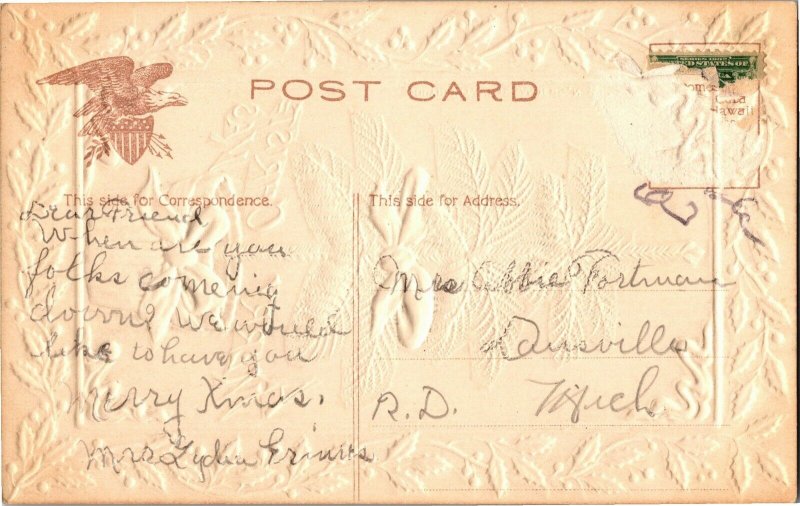 POST CARD
SERIES 1902
This side for Correspondence.
This side for Address.
Dear Friend
When are you
folks comeing
down? We would
like to have you
Merry Xmas.
Mrs Lydia
Mrs Abbie Fortman
Dansville
R.D. Mich